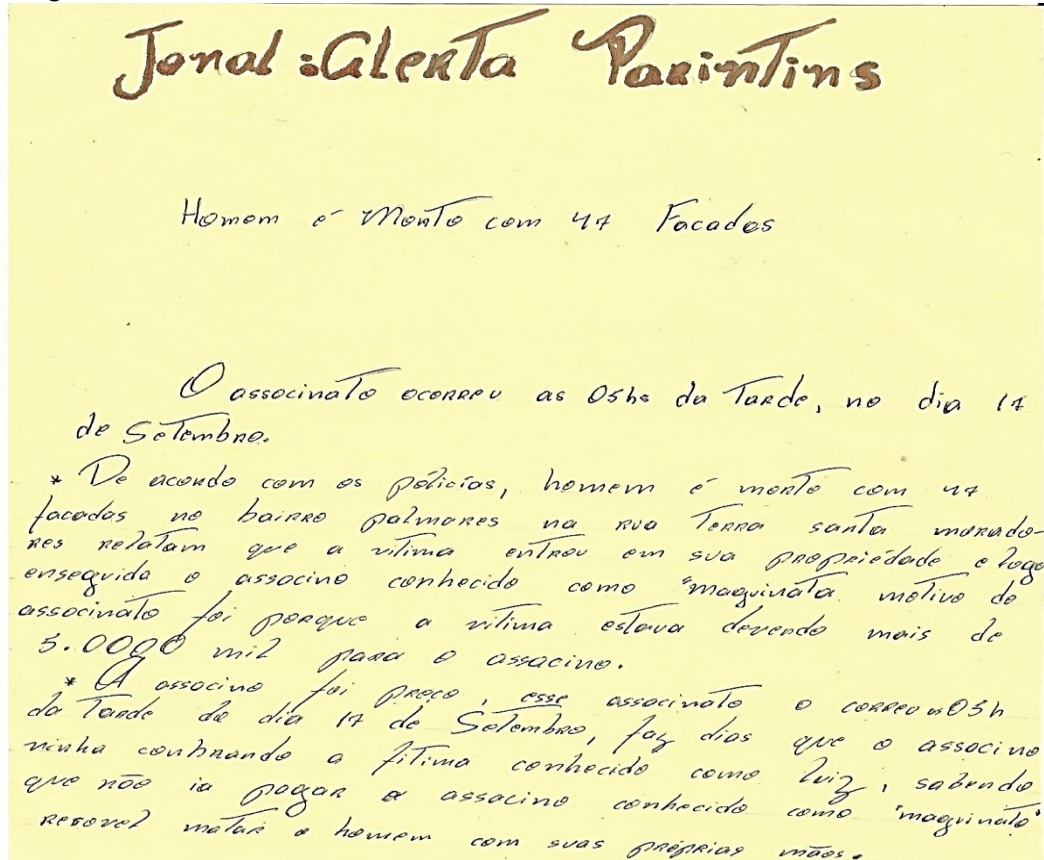 Jonal : Alerta Parintins
Homem é Monto com 47 Facadas
O associnato ocorreu as 05hs da Tarde, no dia 17
de Setembro.
* De acordo com os pólicías, homem é monto com 47
facadas no bairro palmares na rua Terra santa morado-
res relatam que a vitima entrou em sua propriédade e logo
enseguida o associno conhecido como "maquinata motivo do
associnato foi porque a vitima estava devendo mais de
5.0000 mil para o assacino.
* O associno foi preço, esse associnato o correu as 05h
da Tarde do dia 17 de Setembro, faz dias que o associno
vinha conbrando a fitima conhecido como luiz, sabendo
que não ia pagar o assacino conhecido como "maquinato"
resovel matar o homem com suas próprias mãos.